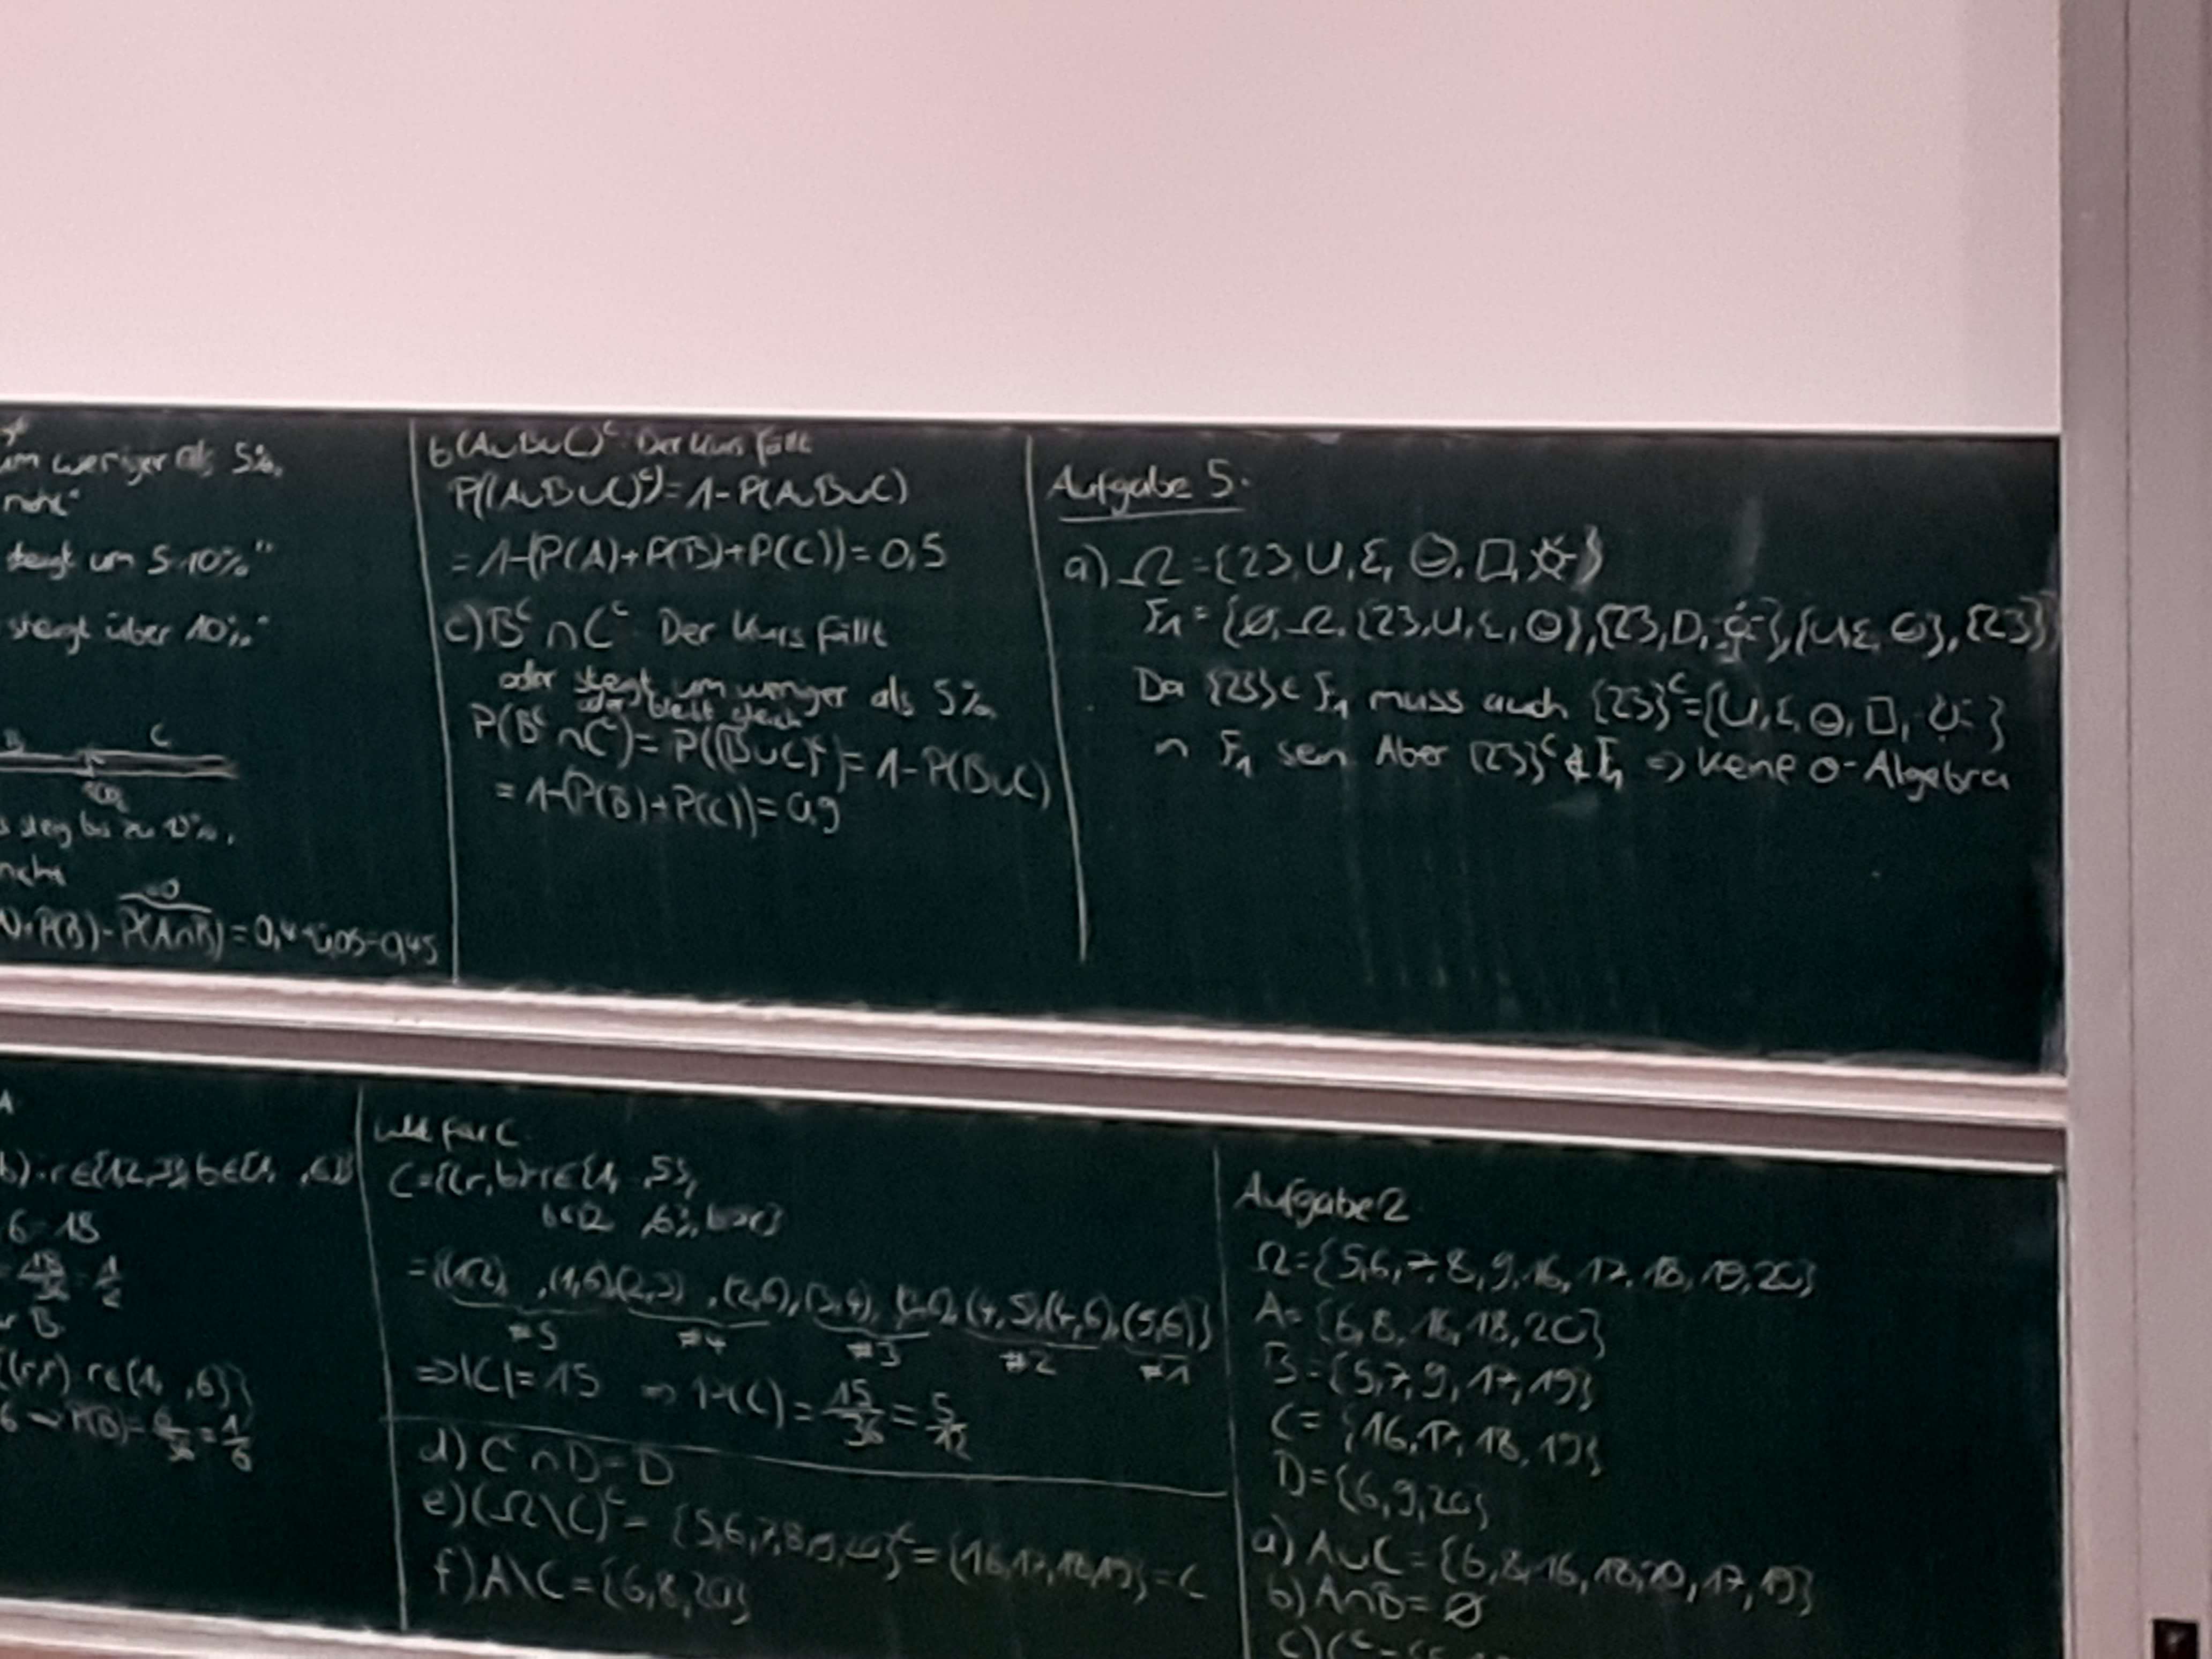 um weniger als 5%,
steigt um 5-10%"
steigt über 10%"
B C
s steig bis zu 10%,
=0
P(B)-P(A∩B)=0,4+0,05=0,45
b(A∪B∪C)ᶜ Der Kurs fällt
P((A∪B∪C)ᶜ)=1-P(A∪B∪C)
=1-(P(A)+P(B)+P(C))=0,5
c)Bᶜ∩Cᶜ Der Kurs fällt
oder steigt um weniger als 5%
oder bleibt gleich
P(Bᶜ∩Cᶜ)=P((B∪C)ᶜ)=1-P(B∪C)
=1-(P(B)+P(C))=0,9
Aufgabe 5:
a) Ω={23,U,Σ,⊖,□,☼}
F₁={∅,Ω,{23,U,Σ,⊖},{23,□,☼},{U,Σ,⊖},{23}}
Da {23}∈F₁ muss auch {23}ᶜ={U,Σ,⊖,□,☼}
in F₁ sein Aber {23}ᶜ∉F₁ ⇒ keine σ-Algebra
A
b):r∈{1,2,3},b∈{1, ,6}}
6=18
=18/36=1/2
B
{(r,r) r∈{1, ,6}}
6 ⇒P(B)=6/36=1/6
für C
C={(r,b):r∈{1, ,5},
b∈{2 ,6},b>r}
={(1,2) ,(1,6),(2,3) ,(2,6),(3,4), (3,6),(4,5),(4,6),(5,6)}
#5 #4 #3 #2 #1
⇒|C|=15 ⇒P(C)=15/36=5/12
d) Cᶜ∩D=D
e)(Ω\C)ᶜ={5,6,7,8,9,20}ᶜ={16,17,18,19}=C
f)A\C={6,8,20}
Aufgabe 2
Ω={5,6,7,8,9,16,17,18,19,20}
A={6,8,16,18,20}
B={5,7,9,17,19}
C={16,17,18,19}
D={6,9,20}
a) A∪C={6,8,16,18,20,17,19}
b)A∩B=∅